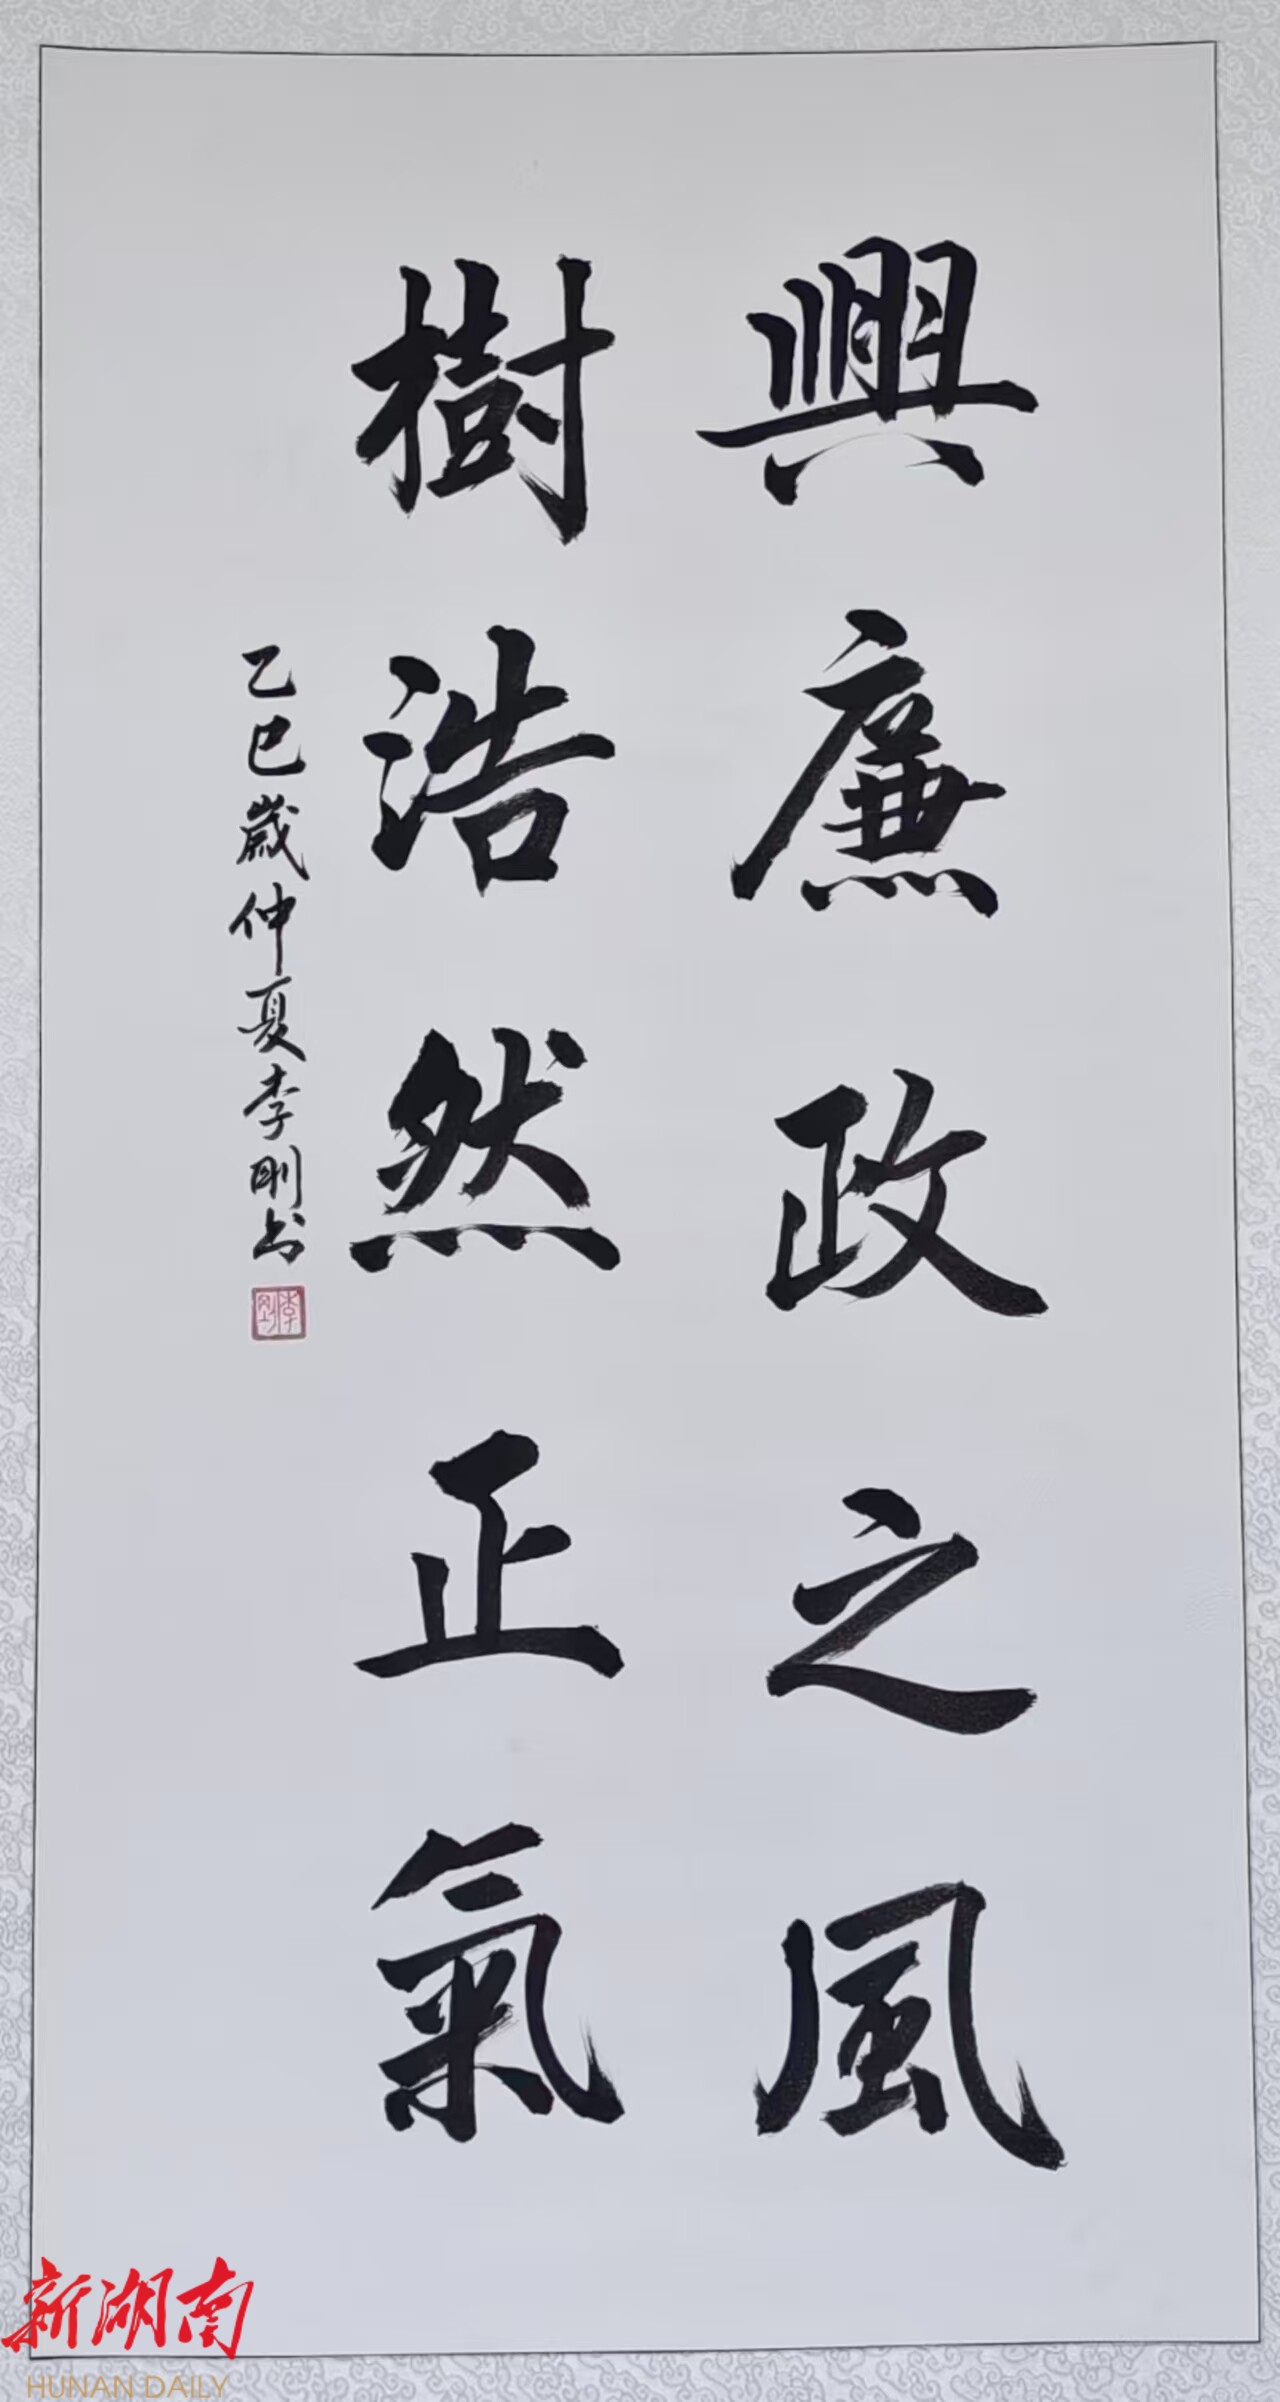 興廉政之風
樹浩然正氣
乙巳歲仲夏李剛书
李剛
新湖南
HUNAN DAILY